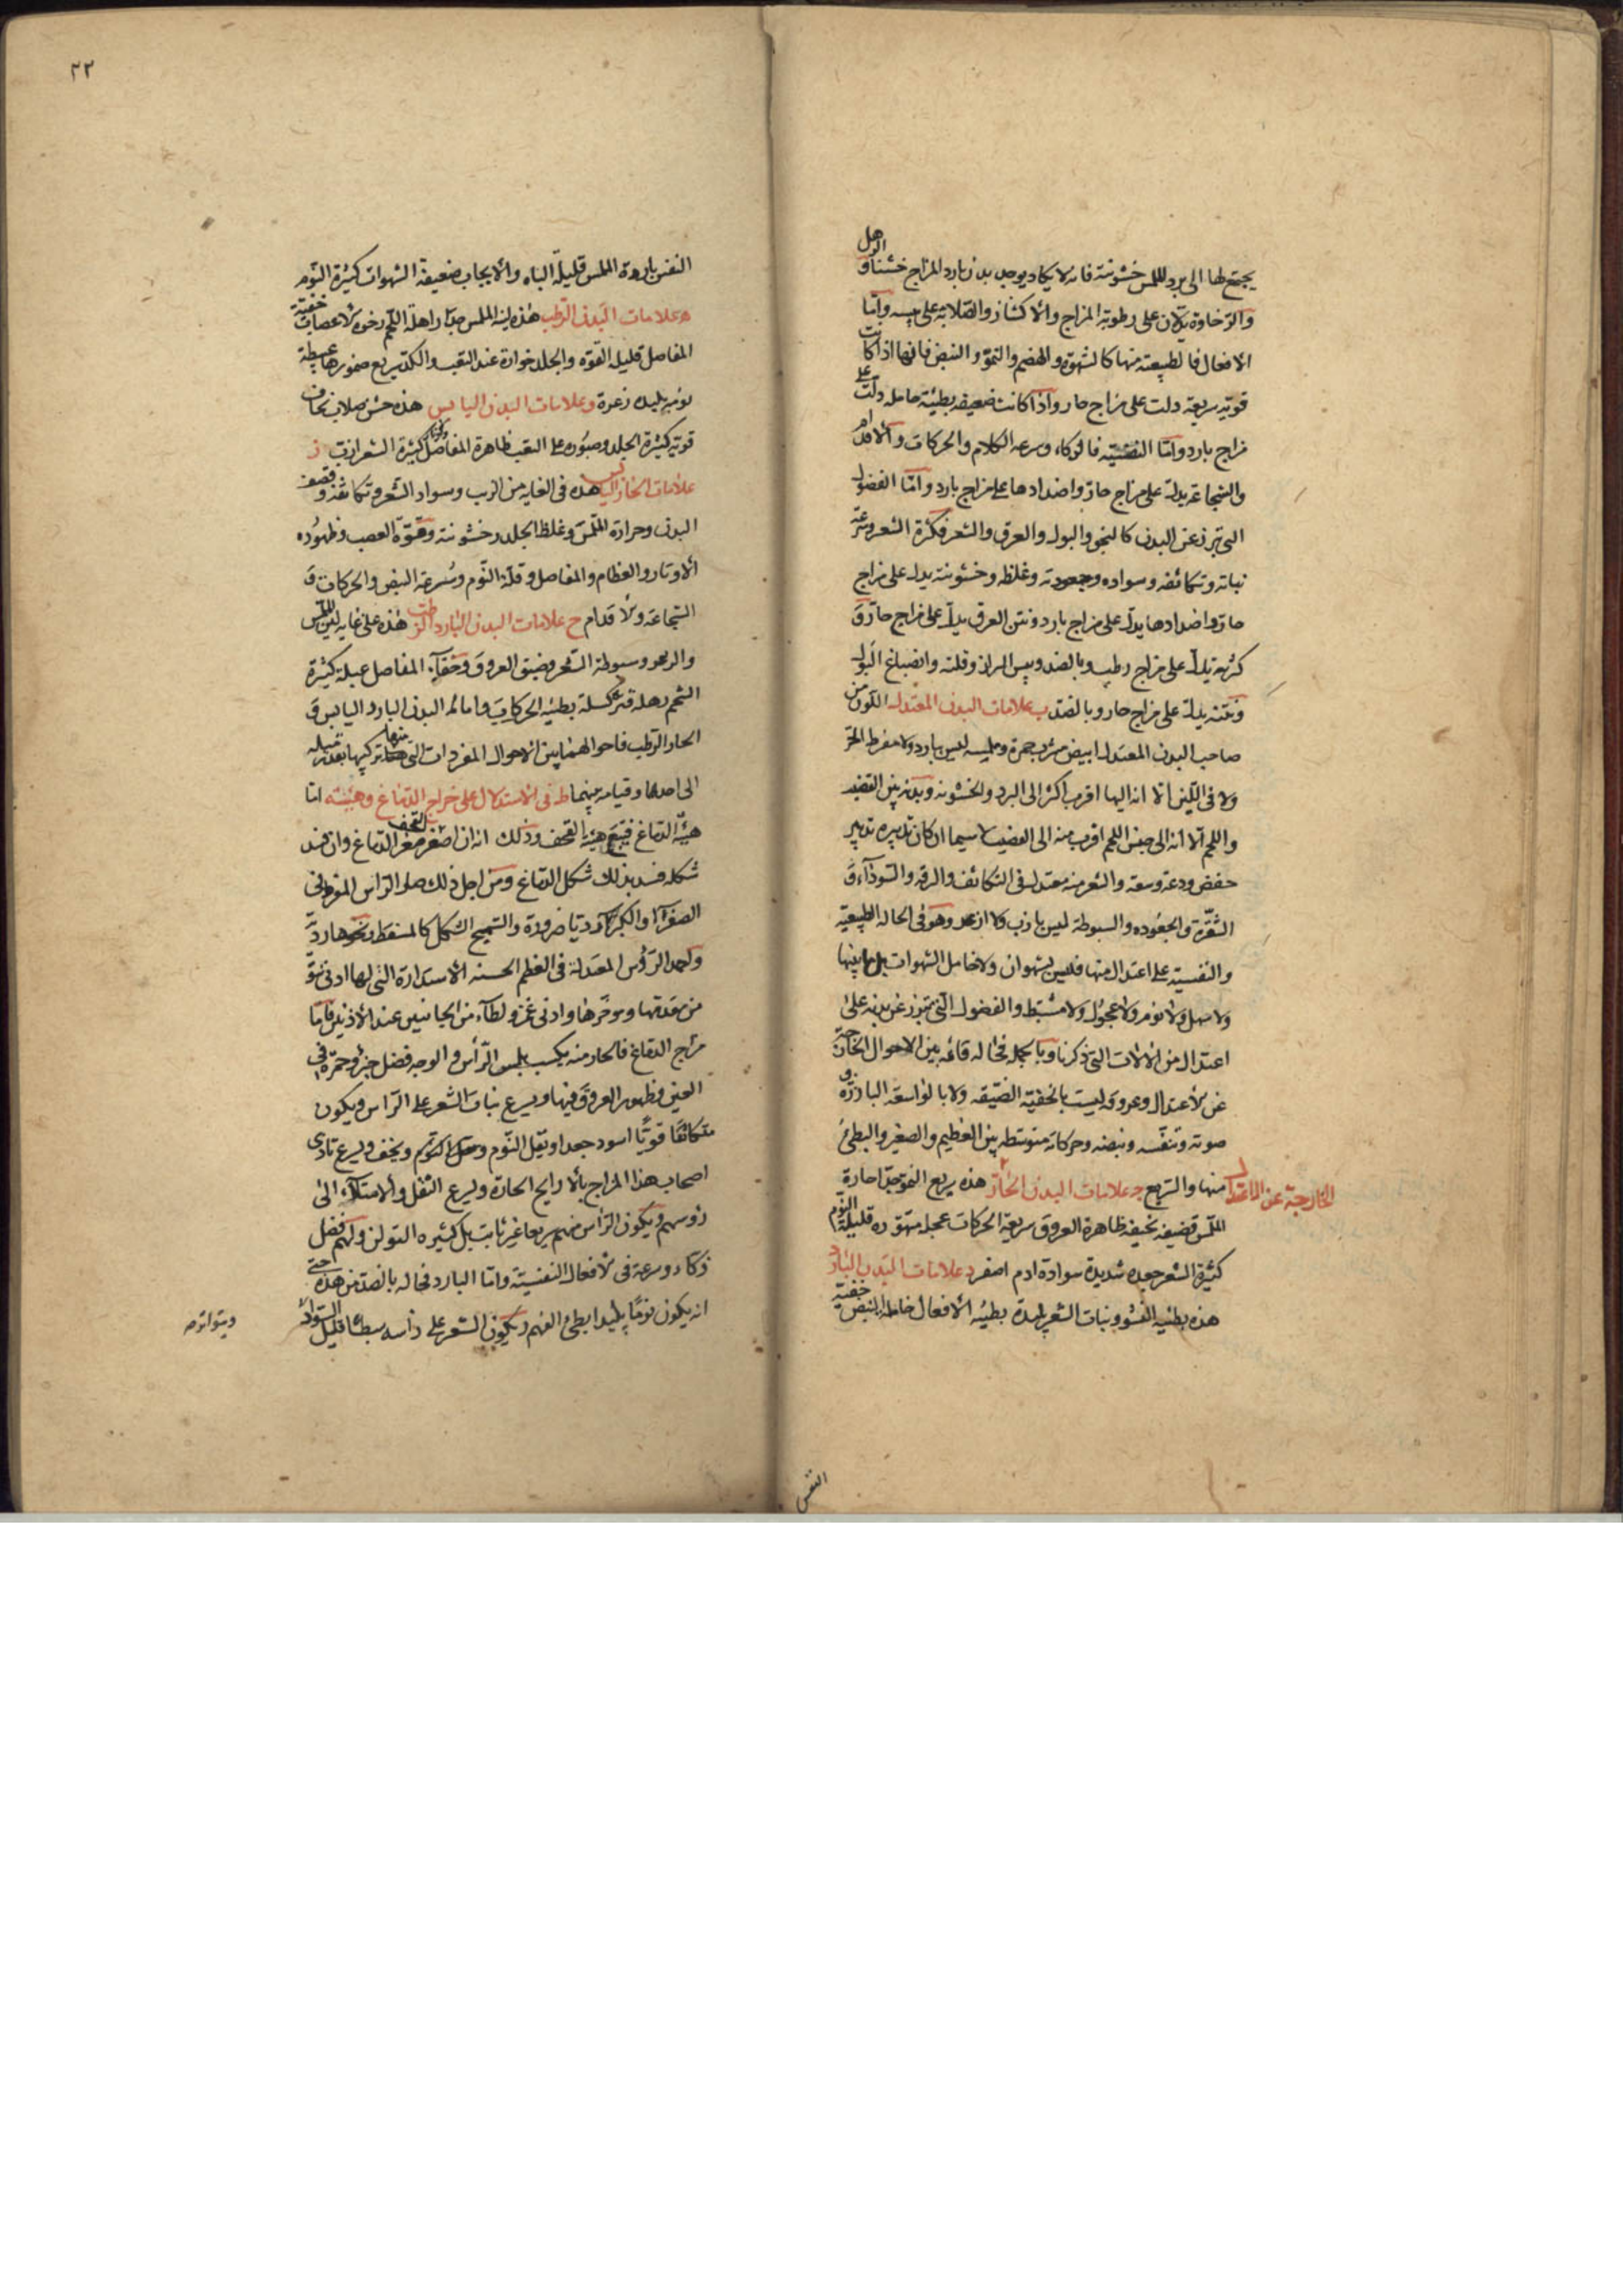 يجتمع لها الى برد الملمس خشونة فانه لا يكاد يوجد بدن بارد المزاج خشنا و الرهل
والرخاوة يدلان على رطوبة المزاج والاكتناز والصلابة على يبسه واما
الافعال فالطبيعية منها كالشهوة والهضم والنمو والنبض فانها اذا كانت
قوية سريعة دلت على مزاج حار واذا كانت ضعيفة بطيئة خاملة دلت على
مزاج بارد واما النفسية فالذكاء وسرعة الكلام والحركات والاقدام
والشجاعة يدل على مزاج حار واضدادها على مزاج بارد واما الفضول
التى تبرز عن البدن كالنجو والبول والعرق والشعر فكثرة الشعر وسرعة
نباته وتكاثفه وسواده وجعودته وغلظه وخشونته يدل على مزاج
حار واضدادها يدل على مزاج بارد ونتن العرق يدل على مزاج حار و
كثرته يدل على مزاج رطب وبالضد ويبس البراز وقلته وانصباغ البول
ونتنه يدل على مزاج حار وبالضد ب علامات البدن المعتدل اللون من
صاحب البدن المعتدل ابيض مشرب حمرة وملمسه ليس ببارد ولا مفرط الحر
ولا فى اللين الا انه اليها اقرب اكثر الى البرد والخشونة وبدنه بين القضيف
واللحم الا انه الى جنس اللحم اقرب منه الى القضيف لا سيما ان كان تدبيره تدبير
خفض ودعة وسعة والشعر منه معتدل فى التكاثف والرقة والسوداء و
الشقرة والجعودة والسبوطة ليس بازب ولا ازعر وهو فى الحالة الطبيعية
والنفسية على اعتدال منها فليس بشهوان ولا خامل الشهوات بل ما بينها
ولا سهل ولا نوم ولا عجول ولا مثبط والفضول التى تبرز عن بدنه على
اعتدال من الالات التى ذكرنا وبالجملة فحاله قائمة بين الاحوال الخارجة
عن الاعتدال وعروقه ليست بالخفية الضيقة ولا بالواسعة البارزة و
صوته وتنفسه ونبضه وحركاته متوسطة بين العظيم والصغير والبطئ
منها والسريع ج علامات البدن الحار هذه سريع النمو جدا حارة
الخارجة عن الاعتدال
الملمس قضيفة نحيفة ظاهرة العروق سريعة الحركات عجلة متهورة قليلة النوم
كثيرة الشعر جعدة شديدة سوادة ادم اصفر د علامات البدن البارد
هذه بطيئة النشو ونبات الشعر بليدة بطيئة الافعال خاملة النبض خفية
النفس
٢٢
النفس باردة الملمس قليلة الباه والايجاب ضعيفة الشهوات كثيرة النوم
ه علامات البدن الرطب هذه لينة الملمس جدا راهلة اللحم رخوة الاعصاب خفية
المفاصل قليلة القوة والجلد خوارة عند التعب والكد سريع ضمورها عبطة
نومة بليدة زعرة و علامات البدن اليابس هذه خشن صلاب نحاف
قوية كثيرة الجلد وصبورة على التعب ظاهرة المفاصل كثيرة الشعر ازب ز
علامات الحار اليابس هذه فى الغاية من الزب وسواد الشعر وتكاثفه وقضف
البدن وحرارة الملمس وغلظ الجلد وخشونته وقوة العصب وظهوره
الاوتار والعظام والمفاصل وقلة النوم وسرعة النبض والحركات و
الشجاعة والاقدام ح علامات البدن البارد الرطب هذه على غاية لين الملمس
والزعر وسبوطة الشعر وضيق العروق وخفاء المفاصل عبلة كثيرة
الشحم رهلة كسلة بطيئة الحركات واما البدن البارد اليابس و
الحار الرطب فاحوالهما بين الاحوال المفردات التى منها تركيبها بقدر ميله
الى احدهما وقيامه بينهما ط فى الاستدلال على مزاج الدماغ وهيئته اما
هيئة الدماغ فيتبع هيئة القحف وذلك انه ان صغر القحف صغر الدماغ وان فسد
شكله فسد بذلك شكل الدماغ ومن اجل ذلك صار الراس المفرط فى
الصغر او الكبر رديا ضرورة والسميج الشكل كالمسقط ونحوها ردى
واحمد الرؤس المعتدلة فى العظم الحسنة الاستدارة التى لها ادنى نتو
من مقدمها ومؤخرها وادنى غمز ولطاء من الجانبين عند الاذنين فاما
مزاج الدماغ فالحار منه يكسب بلمس الراس والوجه فضل حر وحمرة فى
العين وظهور العروق فيها ويسرع نبات الشعر على الراس ويكون
متكاثفا قويا اسود جعدا ويقل النوم ويخف ويسرع تاذى
اصحاب هذا المزاج بالاراييح الحارة ويسرع الثقل والامتلاء الى
رؤسهم ويكون الراس منهم سريعا غير ثابت بل كثيرة التولن ولهم فضل
ذكاء وسرعة فى الافعال النفسية واما البارد فحاله بالضد من هذه حتى
انه يكون نوما بليدا بطئ الفهم ويكون الشعر على راسه سبطا قليل السواد